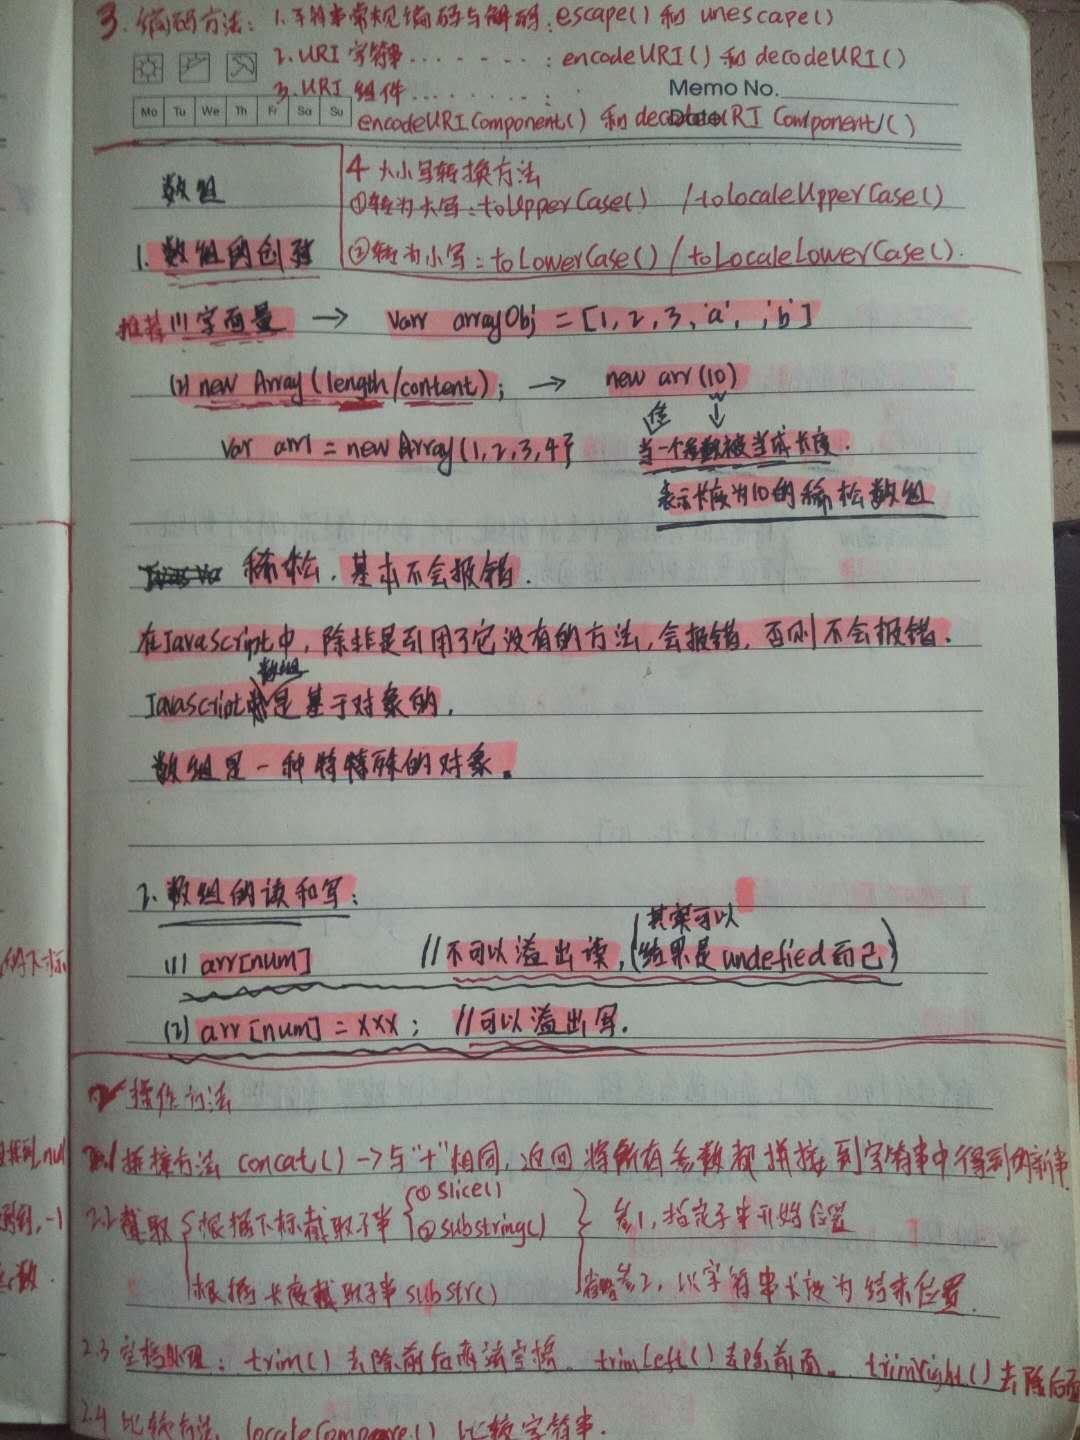 3. 编码方法: 1. 字符串常规编码与解码: escape() 和 unescape()
2. URI 字符串 . . . . . . . : encodeURI() 和 decodeURI()
3. URI 组件 . . . . . . . . :
Memo No.
Mo Tu We Th Fr Sa Su
encodeURIComponent() 和 decodeURI Component()
Date
数组
4 大小写转换方法
①转为大写: toUpperCase() / toLocaleUpperCase()
1. 数组的创建
②转为小写: toLowerCase() / toLocaleLowerCase().
推荐 (1) 字面量 → var arrayObj = [1, 2, 3, 'a', 'b']
(2) new Array(length/content); → new arr(10)
var arr = new Array(1, 2, 3, 4)
当一个参数被当成长度.
表示长度为10的稀松数组
稀松, 基本不会报错.
在JavaScript中, 除非是引用了它没有的方法, 会报错, 否则不会报错.
数组
JavaScript 是基于对象的.
数组是一种特特殊的对象.
2. 数组的读和写:
(1) arr[num] //不可以溢出读, (其实可以
结果是 undefied 而已)
(2) arr[num] = xxx; //可以溢出写.
2 操作方法
2.1 拼接方法 concat() -> 与"+"相同, 返回将所有参数都拼接到字符串中得到的新串
2.2 截取 { 根据下标截取子串 { ①slice()
②substring() } 参1, 指定子串开始位置
根据长度截取子串 substr() 省略参2, 以字符串长度为结束位置.
2.3 空格处理: trim() 去除前后两端空格. trimLeft() 去除前面. trimright() 去除后面
2.4 比较方法. localeCompare() 比较字符串.
的下标
找到, null
到, -1
数.